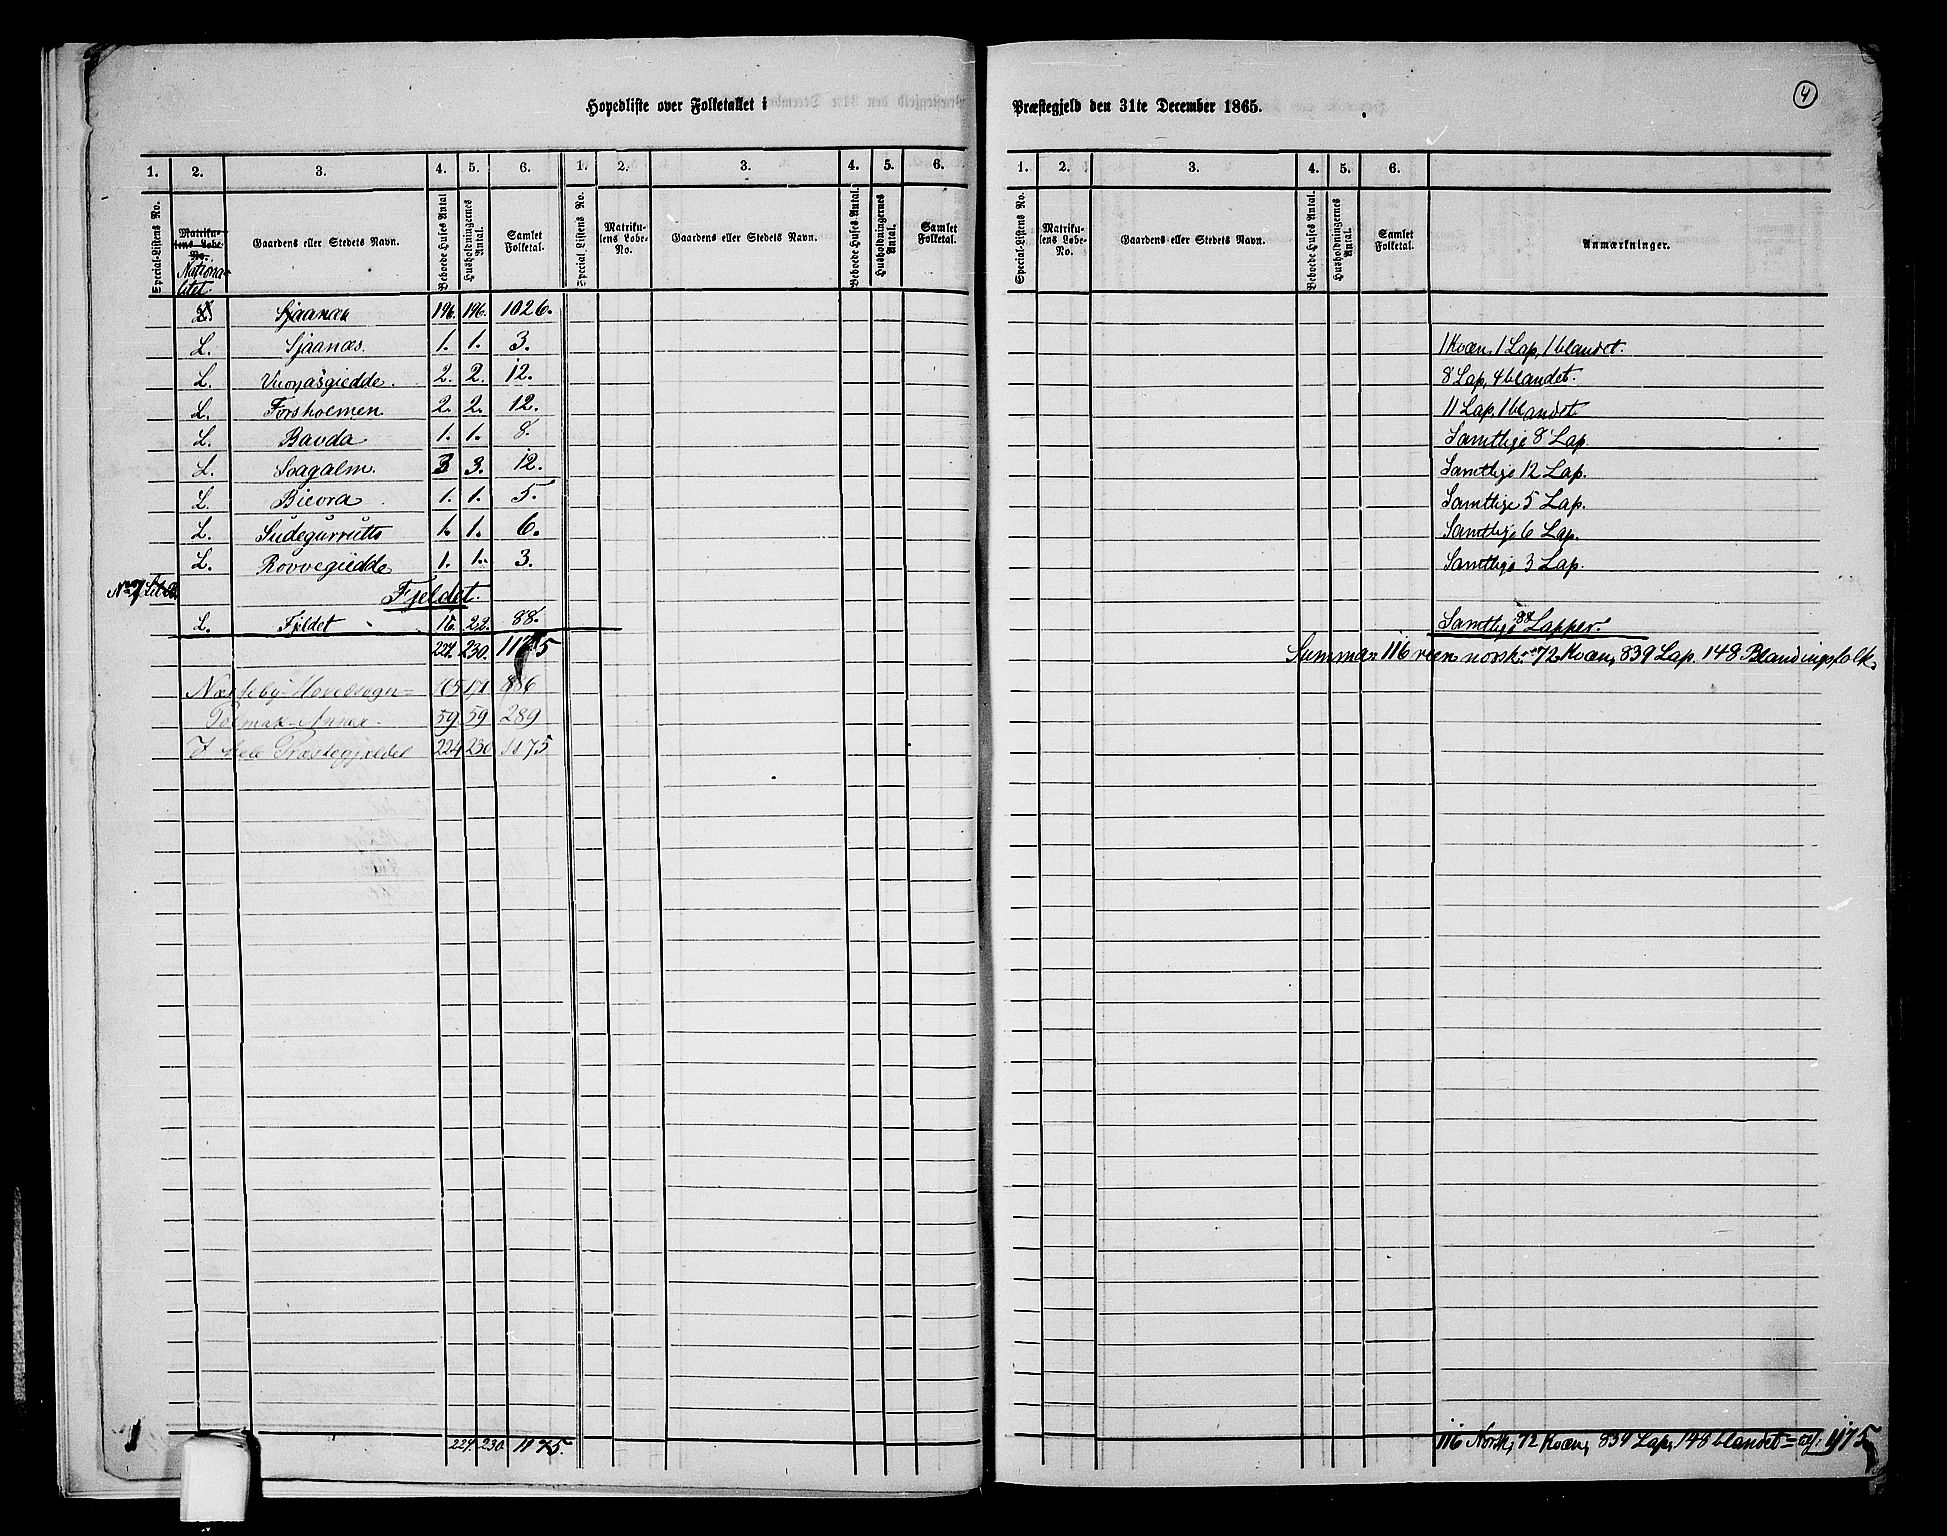 Hovedliste over Folketallet i Præstegjeld den 31te December 1865.
4
1. 2. 3. 4. 5. 6. 1. 2. 3. 4. 5. 6. 1. 2. 3. 4. 5. 6.
Special-Listens No. Matrikulens Løbe-No. Nationalitet. Gaardens eller Stedets Navn. Beboede Huses Antal Husholdningernes Antal. Samlet Folketal. Special-Listens No. Matrikulens Løbe-No. Gaardens eller Stedets Navn. Beboede Huses Antal. Husholdningernes Antal. Samlet Folketal. Special-Listens No. Matrikulens Løbe-No. Gaardens eller Stedets Navn. Beboede Huses Antal. Husholdningernes Antal. Samlet Folketal. Anmærkninger.
196. 196. 1026.
L. Sjaanæs. 1. 1. 3. 1 Kvæn, 1 Lap, 1 blandet.
L. Vuonasgiedde. 2. 2. 12. 8 Lap, 4 blandet.
L. Forsholmen 2. 2. 12. 11 Lap, 1 blandet
L. Bavda 1. 1. 8. Samtlige 8 Lap
L. Saagalm. 3 3. 12. Samtlige 12 Lap.
L. Bicora 1. 1. 5. Samtlige 5 Lap.
L. Sudegurrutto 1. 1. 6. Samtlige 6 Lap.
L. Rovvegiedde 1. 1. 3. Samtlige 3 Lap.
Fjeldet.
L. Fjeldet 16. 22. 88. Samtlige 88 Lapper.
224. 230. 1175 Summa = 116 reen norsk, 72 Kvæn, 839 Lap. 148 Blandingsfolk.
Næsseby-Hovedsogn = 165 171 886
Polmak-Annex. 59 59 289
I hele Præstegjeldet 224 230 1175
224. 230. 1175. 116 Norsk, 72 Kvæn, 839 Lap, 148 blandet = 1175